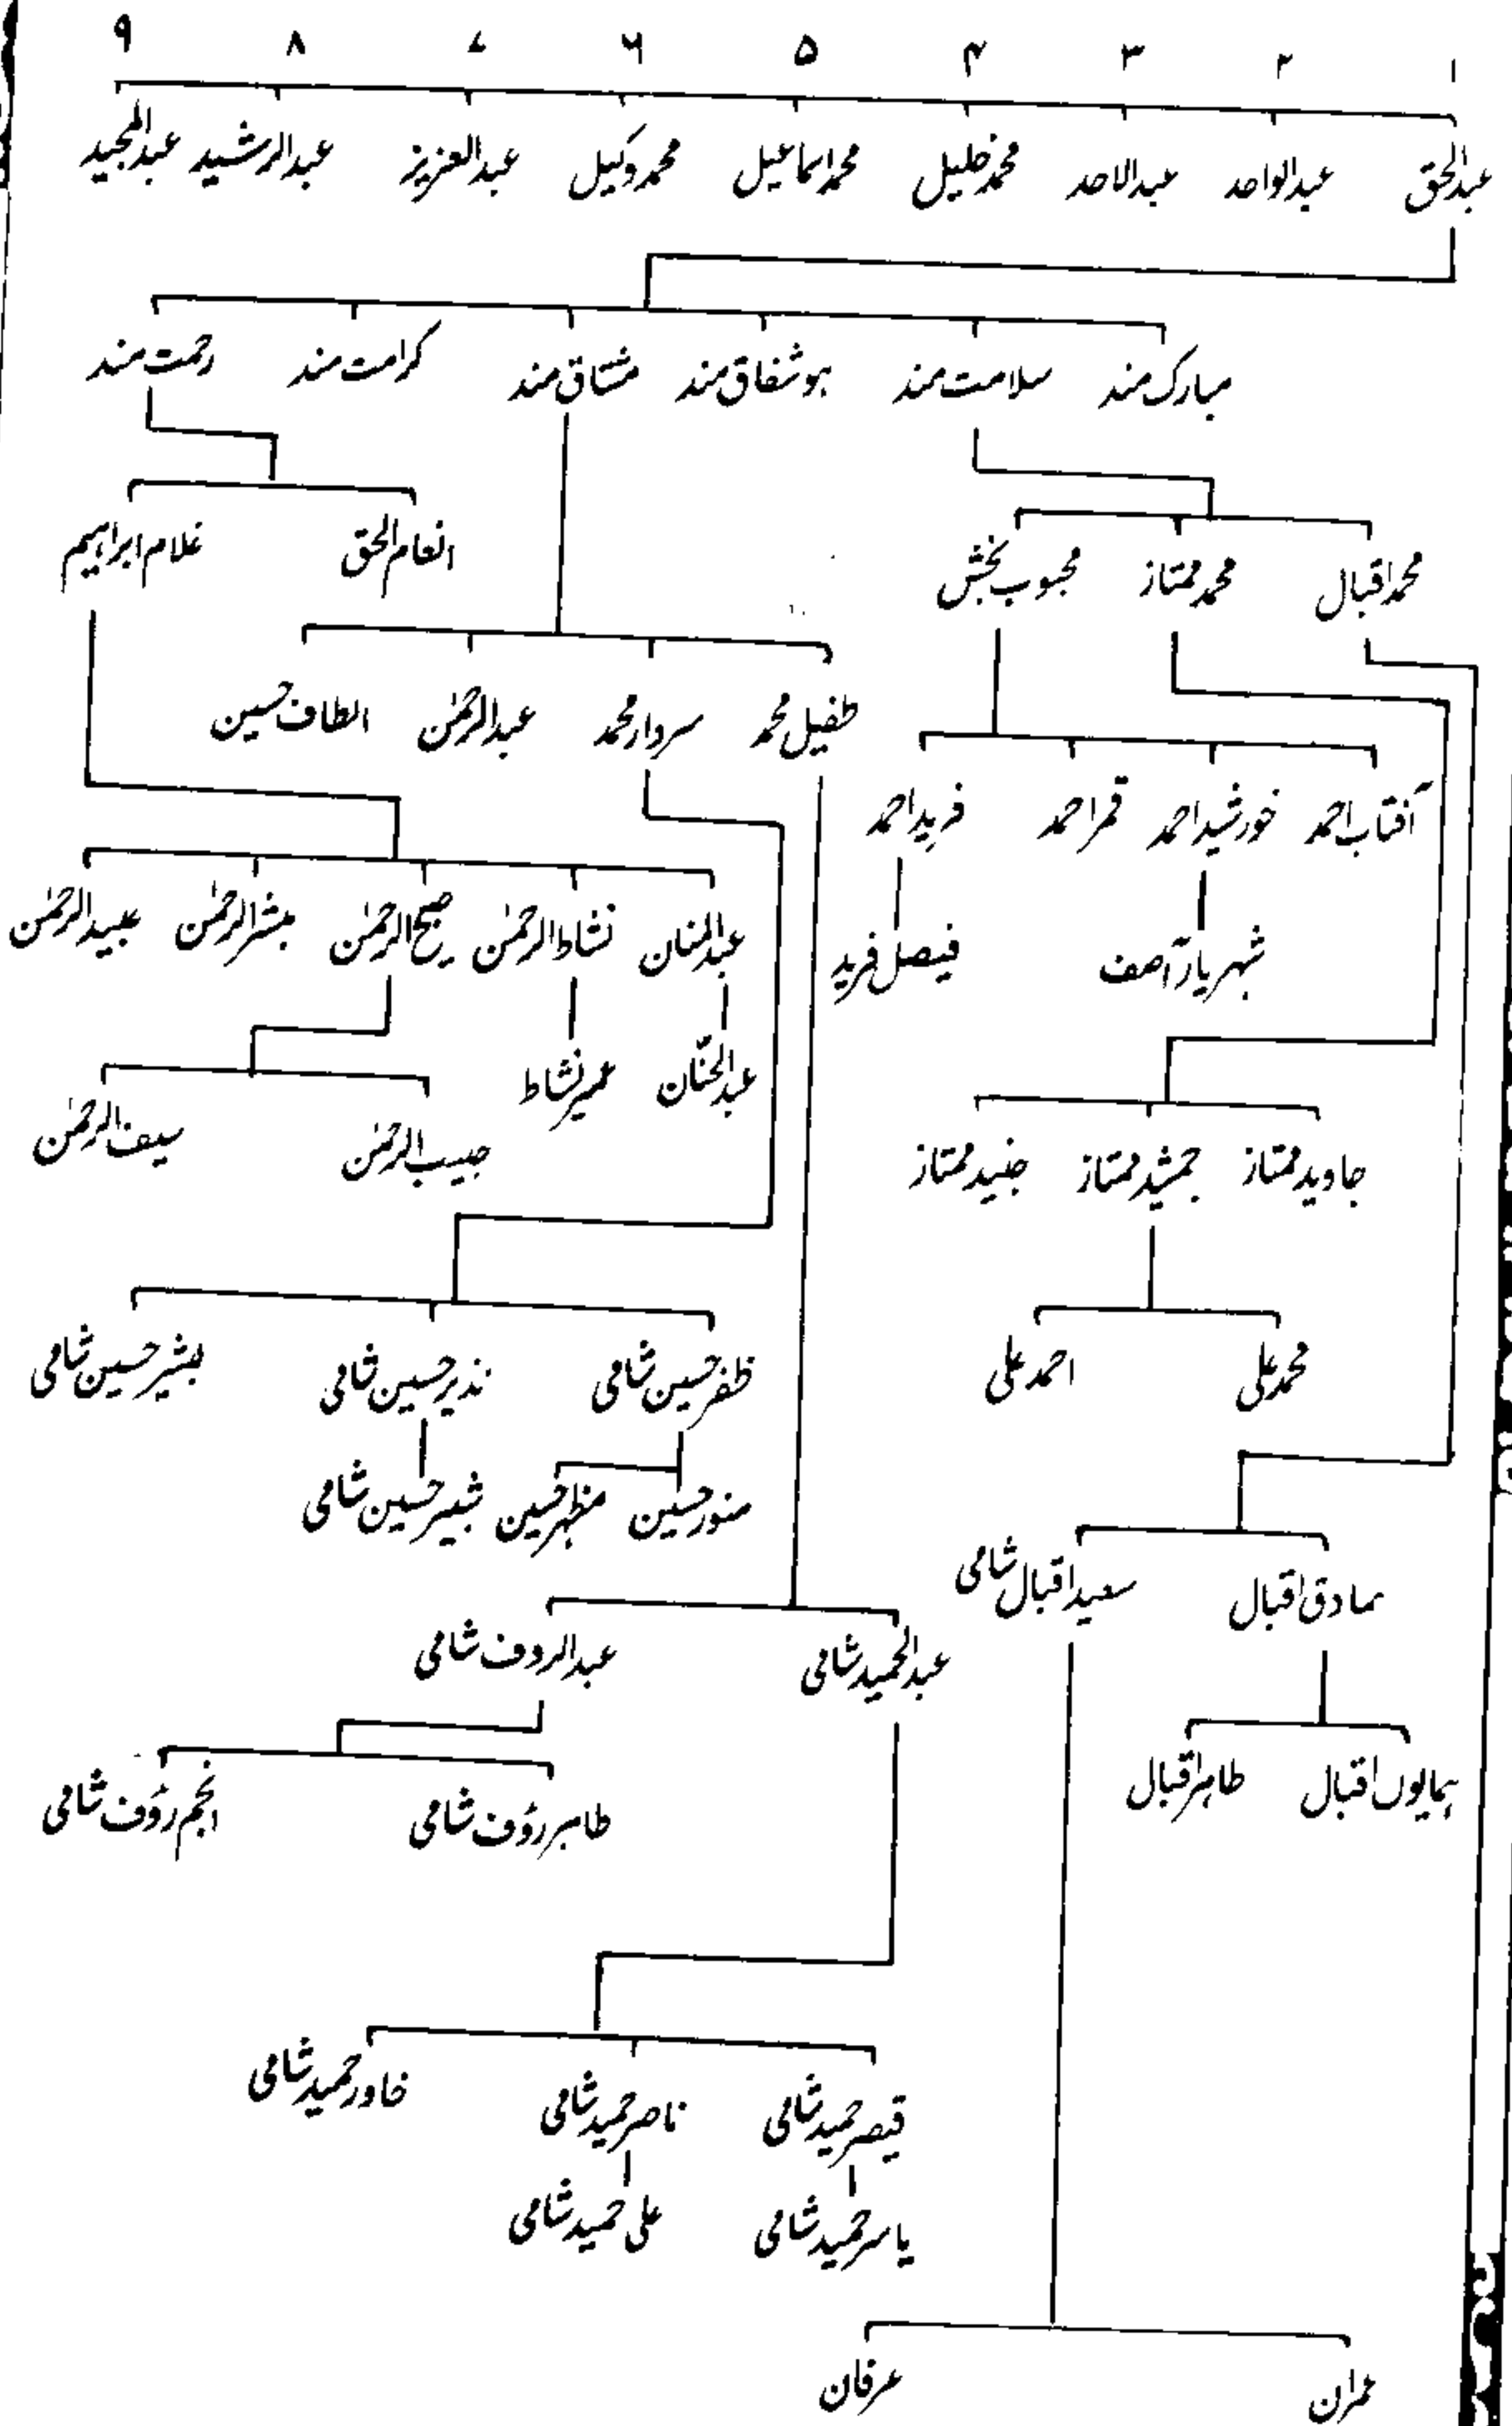 ۱ ۲ ۳ ۴ ۵ ۶ ۷ ۸ ۹
عبدالحق عبدالواحد عبدالاحد محمد خلیل محمد اسماعیل محمد وکیل عبدالعزیز عبدالرشید عبدالمجید
مبارک مند سلامت مند ہوشفاق مند مشتاق مند کرامت مند رحمت مند
محمد اقبال محمد ممتاز محبوب بخش انعام الحق غلام ابراہیم
طفیل محمد سردار محمد عبدالرحمٰن الطاف حسین
آفتاب احمد خورشید احمد قمر احمد فرید احمد
عبدالمنان نشاط الرحمٰن صبیح الرحمٰن مبشر الرحمٰن عبید الرحمٰن
شہریار آصف فیصل فرید
عبدالحنّان عمیر نشاط
حبیب الرحمٰن سیف الرحمٰن
جاوید ممتاز جمشید ممتاز جنید ممتاز
محمد علی احمد علی
ظفر حسین شامی نذیر حسین شامی بشیر حسین شامی
منور حسین مظہر حسین شبیر حسین شامی
صادق اقبال سعید اقبال شامی
عبدالحمید شامی عبدالروف شامی
ہمایوں اقبال طاہر اقبال
طاہر رؤف شامی انجم رؤف شامی
قیصر حمید شامی ناصر حمید شامی خاور حمید شامی
یاسر حمید شامی علی حمید شامی
عمران عرفان